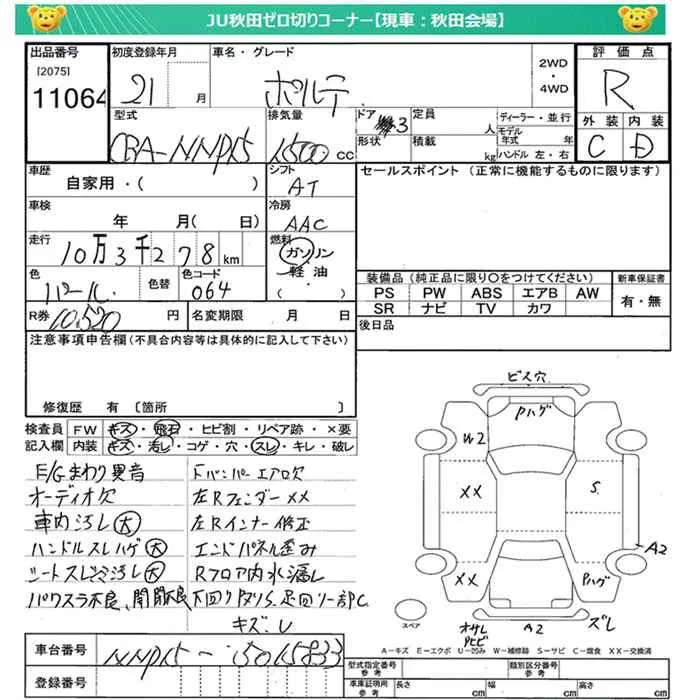 JU秋田ゼロ切りコーナー【現車：秋田会場】
出品番号
[2075]
11064
初度登録年月
21 月
車名・グレード
ポルテ
2WD
・
4WD
評価点
R
型式
CBA-NNP15
排気量
1500 cc
ドア
形状
3
定員
人
積載
kg
ディーラー・並行
モデル
年式 年
ハンドル 左・右
外装 内装
C D
車歴
自家用・( )
シフト
AT
セールスポイント (正常に機能するものに限ります)
車検
年 月( 日)
冷房
AAC
走行
10万3千278km
燃料
ガソリン
・
軽油
・
( )
色
パール
色替
色コード
064
装備品 (純正品に限り○をつけてください)
PS PW ABS エアB AW
SR ナビ TV カワ
新車保証書
有・無
R券 10,520 円
名変期限 月 日
後日品
注意事項申告欄(不具合内容等は具体的に記入して下さい)
修復歴 有 〔箇所 〕
検査員
記入欄
FW キズ・飛石・ヒビ割・リペア跡・×要
内装 キズ・汚レ・コゲ・穴・スレ・キレ・破レ
E/Gまわり異音
オーディオ欠
車内汚レ(大)
ハンドルスレハゲ(大)
パワスラ不良、開閉不良
下バンパーエアロ欠
左Rフェンダー××
左Rインナー修正
エンドパネル歪み
Rフロア内水漏レ
キズレ
ビス穴
Pハゲ
W2
××
S
A2
××
Pハゲ
スペア
A2
ズレ
A－キズ E－エクボ U－凹み W－補修跡 S－サビ C－腐食 XX－交換済
車台番号
NNP15-5015833
登録番号
型式指定番号
参考
類別区分番号
参考
車車証明用
参考
長さ cm
幅 cm
高さ cm